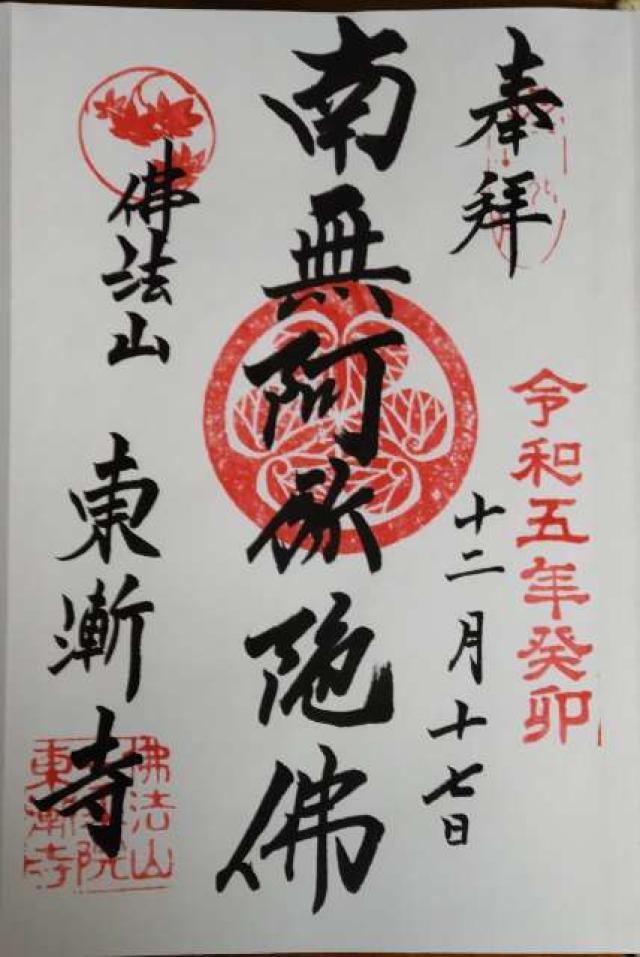 奉拝
令和五年癸卯
十二月十七日
南無阿弥陀佛
佛法山
東漸寺
佛法山
東漸寺